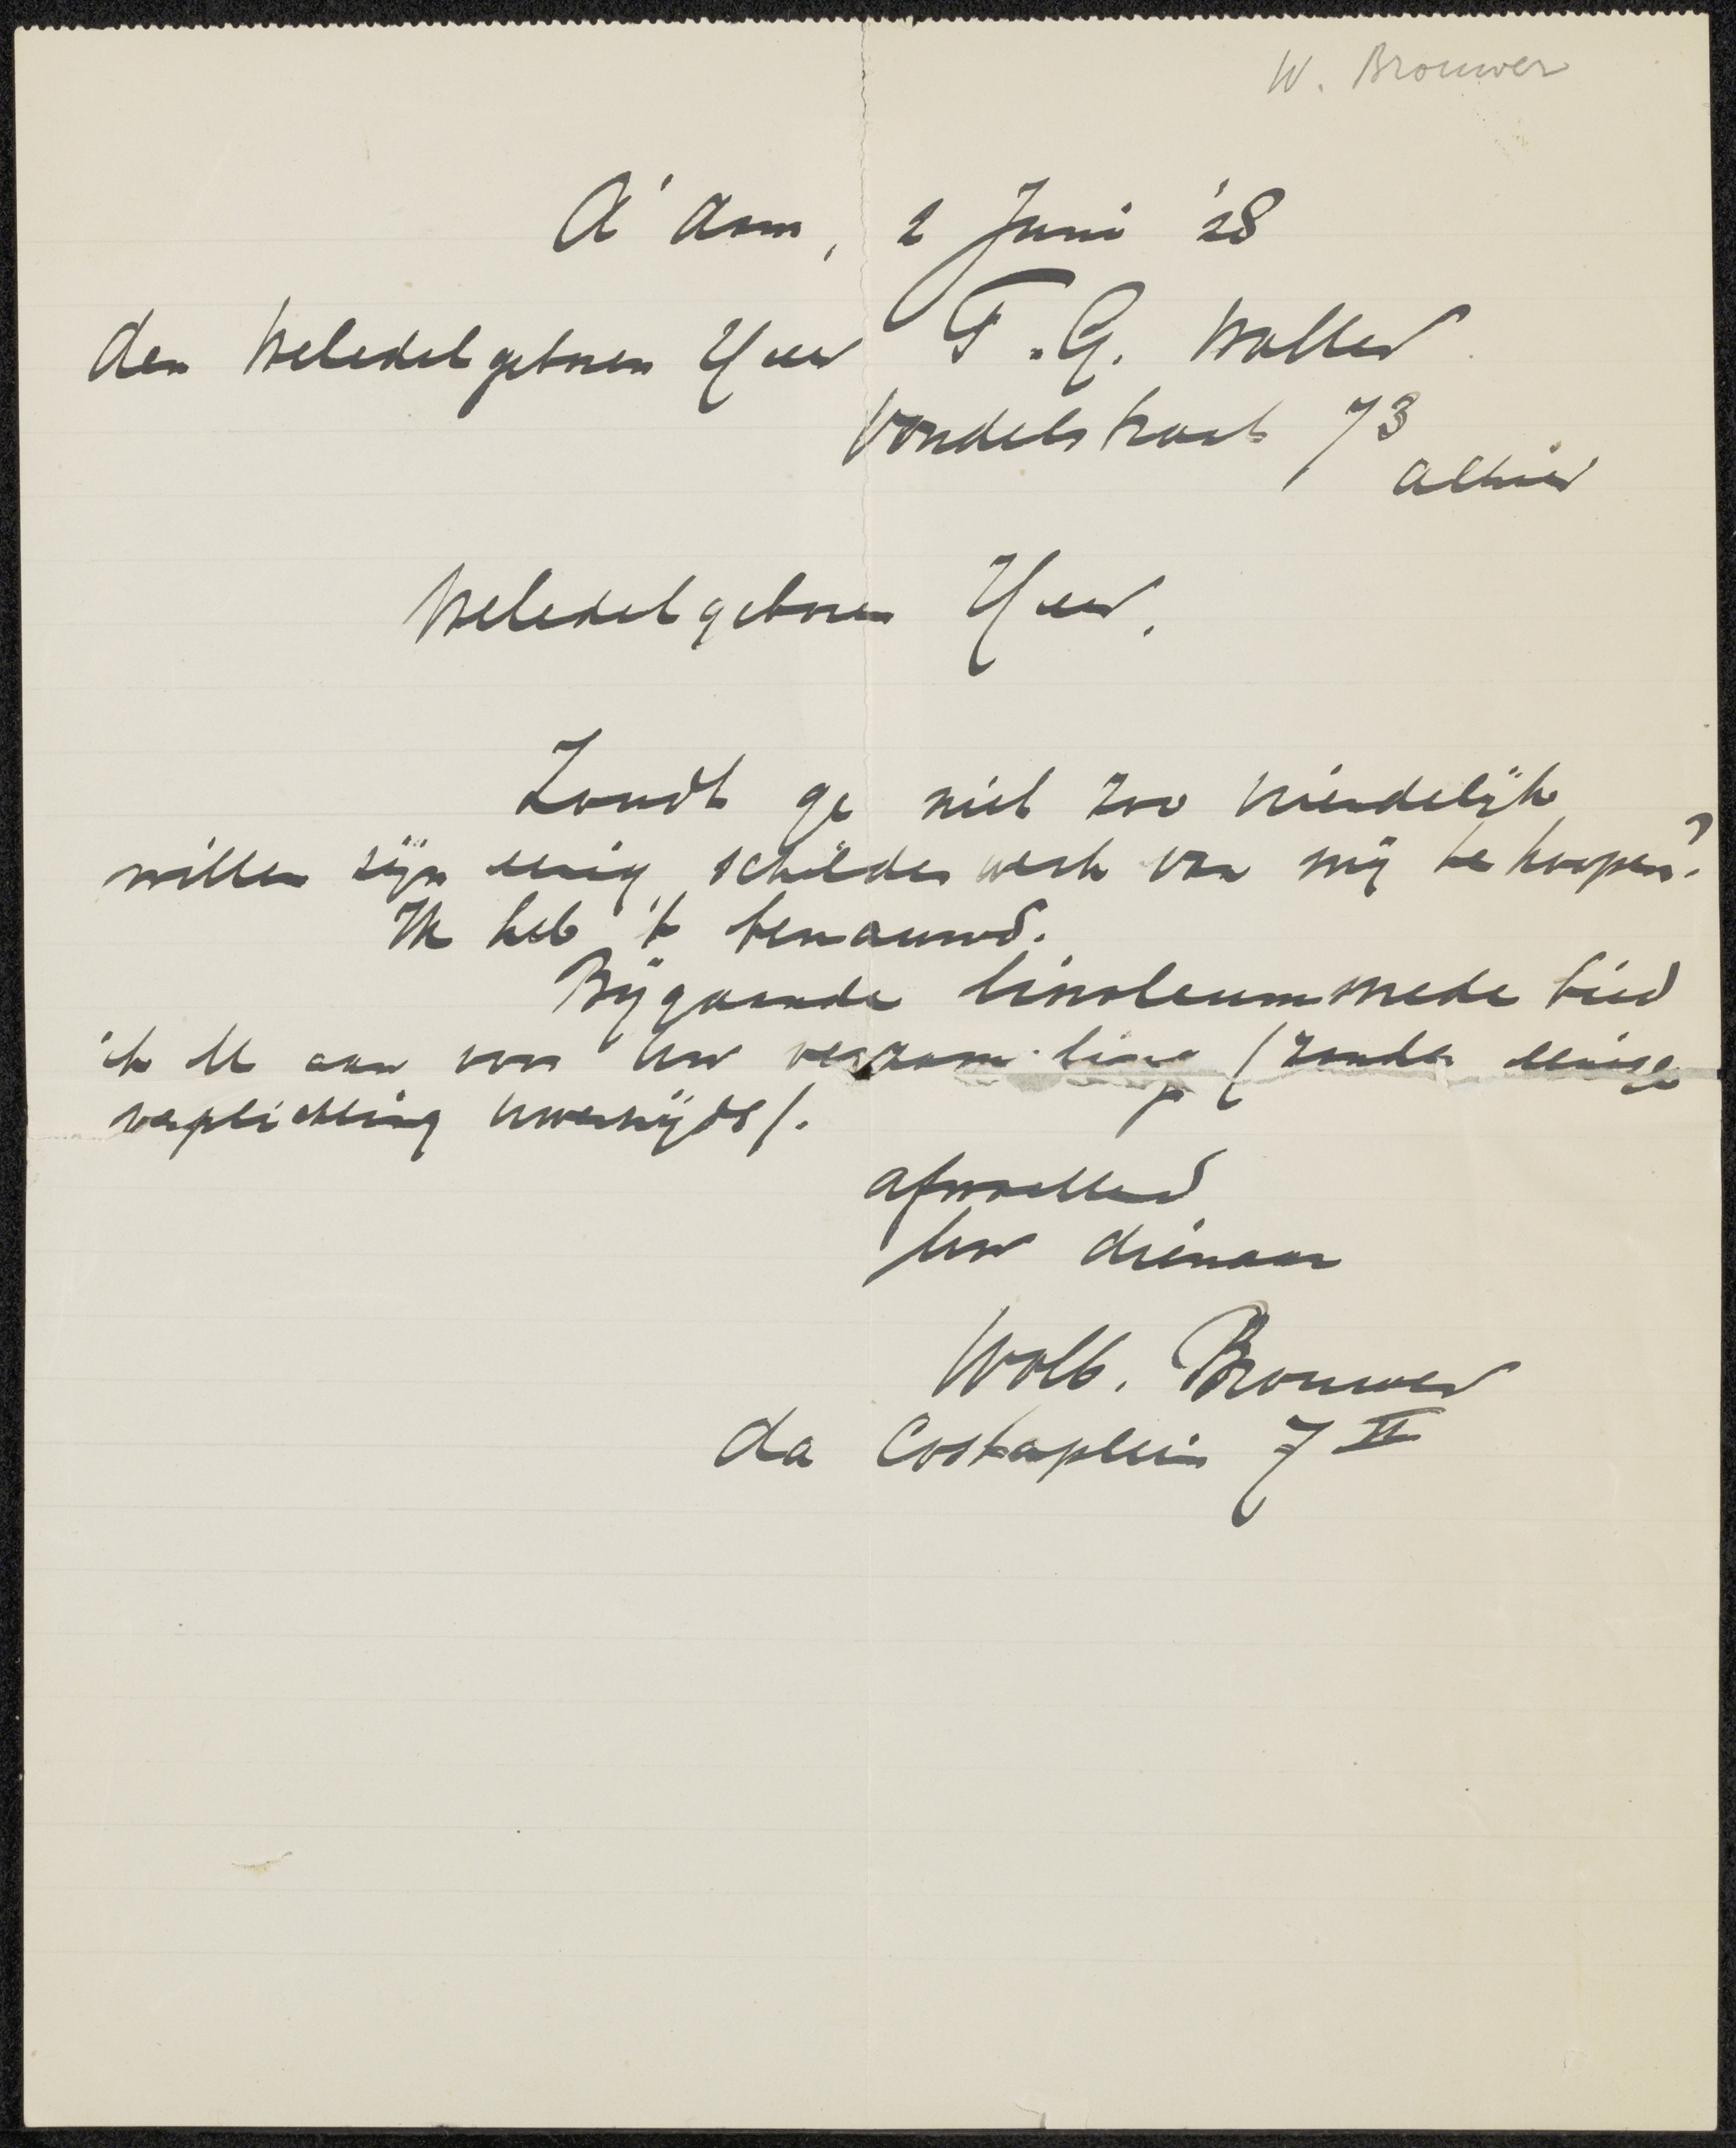 W. Brouwer
A'dam, 2 Juni '28
den Weledelgeboren Heer F. G. Waller
Vondelstraat 73
alhier
Weledelgeboren Heer,
Zoudt ge niet zoo vriendelijk
willen zijn eenig schilderwerk van mij te koopen?
Ik heb 't benauwd.
Bijgaande linoleumsnede bied
ik U aan voor Uw verzameling (zonder eenige
verplichting Uwerzijds).
afwachtend
Uw dienaar
Wolb. Brouwer
da Costaplein 7 II